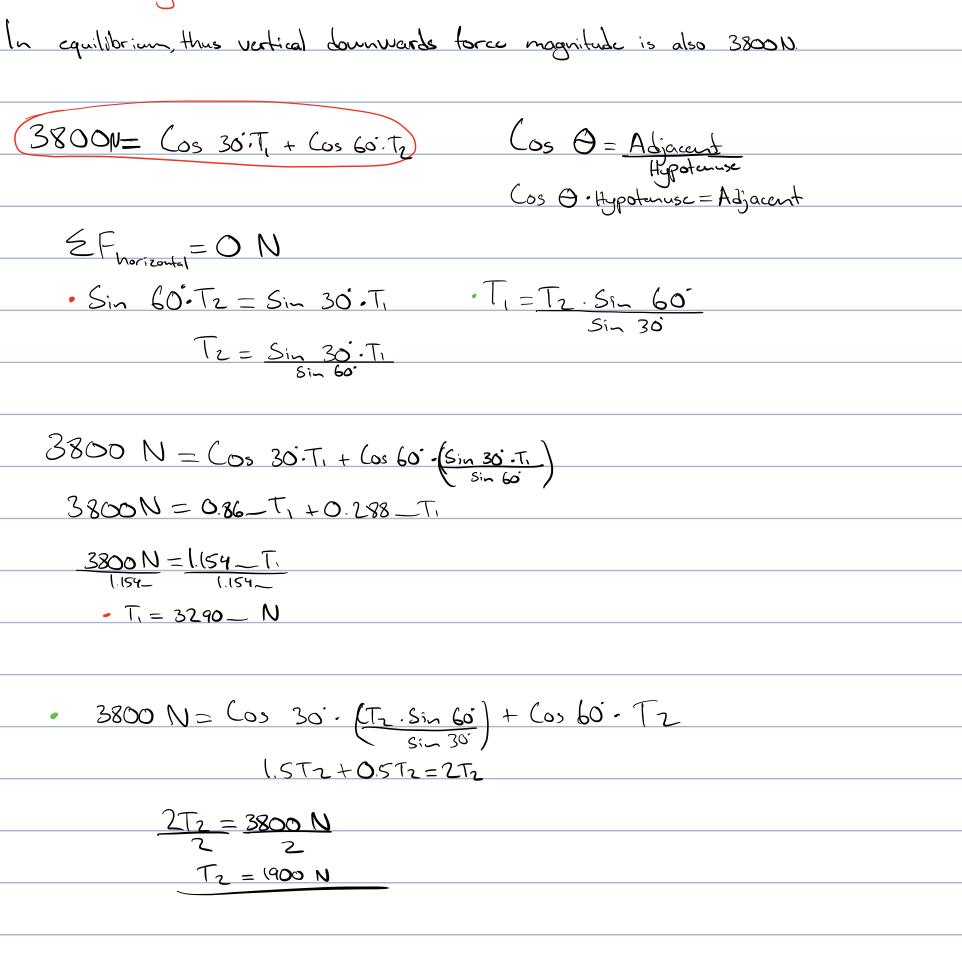 In equilibrium, thus vertical downwards force magnitude is also 3800N.
3800N = Cos 30°·T₁ + Cos 60°·T₂
Cos θ = Adjacent / Hypotenuse
Cos θ · Hypotenuse = Adjacent
ΣF horizontal = 0 N
• Sin 60°·T₂ = Sin 30°·T₁
• T₁ = T₂ · Sin 60° / Sin 30°
T₂ = Sin 30°·T₁ / Sin 60°
3800 N = Cos 30°·T₁ + Cos 60° · (Sin 30°·T₁ / Sin 60°)
3800N = 0.86_ T₁ + 0.288_ T₁
3800 N / 1.154_ = 1.154_ T₁ / 1.154_
• T₁ = 3290_ N
• 3800 N = Cos 30° · (T₂ · Sin 60° / Sin 30°) + Cos 60° · T₂
1.5T₂ + 0.5T₂ = 2T₂
2T₂ / 2 = 3800 N / 2
T₂ = 1900 N